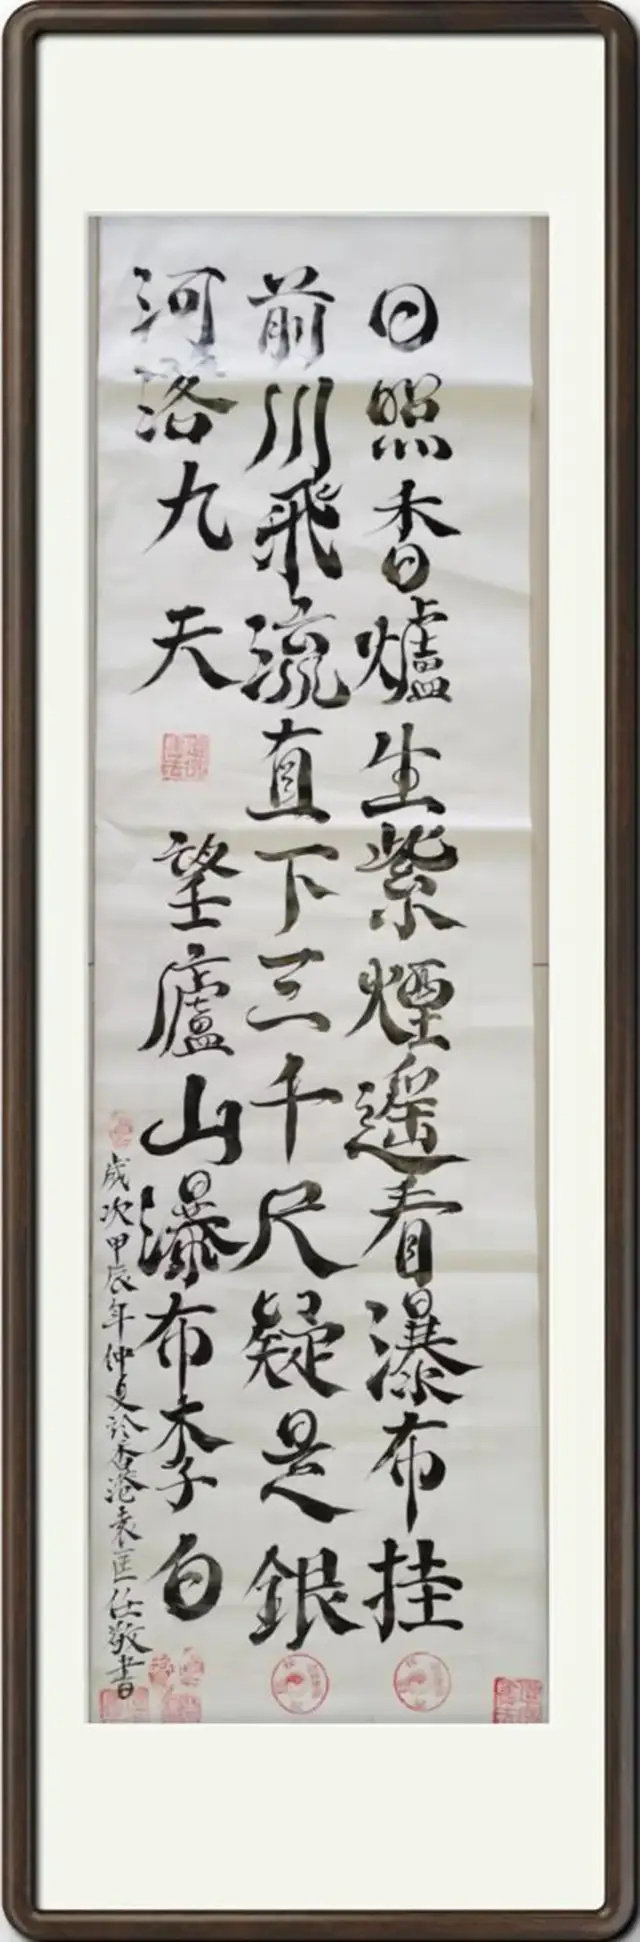 日照香爐生紫煙遥看瀑布挂
前川飛流直下三千尺疑是銀
河落九天 望廬山瀑布李白
歲次甲辰年仲夏於香港袁匡任敬書